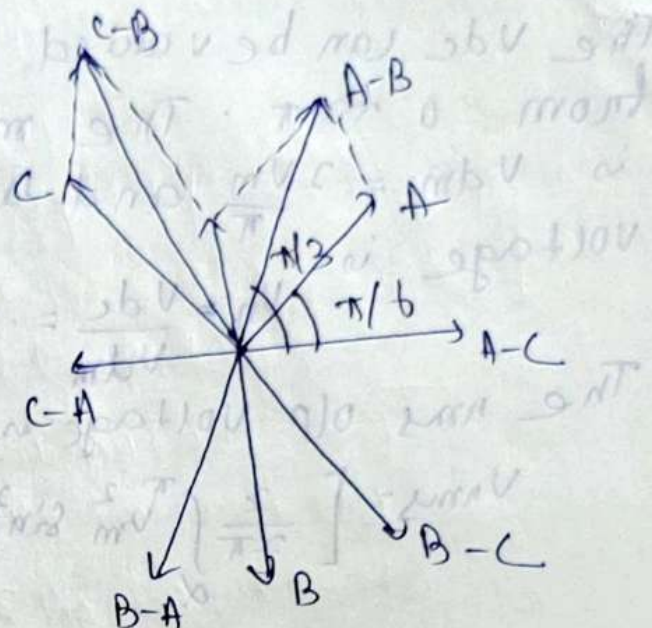 C-B
A-B
C
A
π/3
π/6
A-C
C-A
B-C
B-A
B